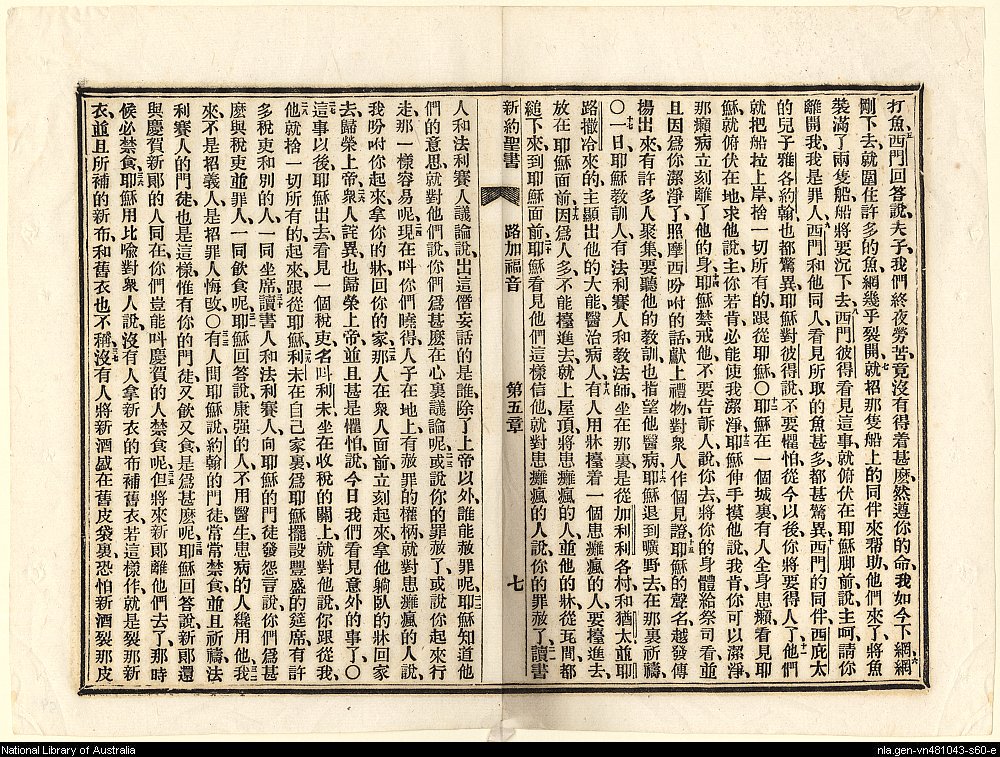 打魚、西門回答說、夫子、我們終夜勞苦、竟沒有得着甚麼、然遵你的命、我如今下網、網
剛下去、就圍住許多的魚、網幾乎裂開、就招那隻船上的同伴來帮助、他們來了、將魚
裝滿了兩隻船、船將要沉下去、西門彼得看見這事、就俯伏在耶穌脚前、說、主呵、請你
離開我、我是罪人、西門和他同人、看見所取的魚甚多、都甚驚異、西門的同伴、西庇太
的兒子雅各約翰、也都驚異、耶穌對彼得說、不要懼怕、從今以後、你將要得人了、他們
就把船拉上岸、捨一切所有的、跟從耶穌、〇耶穌在一個城裏、有人全身患癩、看見耶
穌、就俯伏在地、求他說、主你若肯、必能使我潔淨、耶穌伸手摸他說、我肯、你可以潔淨、
那癩病立刻離了他的身、耶穌禁戒他、不要告訴人、說、你去將你的身體給祭司看、並
且因爲你潔淨了、照摩西吩咐的話獻上禮物、對衆人作個見證、耶穌的聲名越發傳
揚出來、有許多人聚集、要聽他的教訓、也指望他醫病、耶穌退到曠野去、在那裏祈禱、
〇一日耶穌教訓人、有法利賽人和教法師、坐在那裏、是從加利利各村、和猶太、並耶
路撒冷來的、主顯出他的大能、醫治病人、有人用牀擡着一個患癱瘋的人、要擡進去、
放在耶穌面前、因爲人多、不能擡進去、就上屋頂、將患癱瘋的人、並他的牀、從瓦間都
縋下來、到耶穌面前、耶穌看見他們這樣信他、就對患癱瘋的人說、你的罪赦了、讀書
新約聖書 路加福音 第五章 七
人和法利賽人議論說、出這僭妄話的是誰、除了上帝以外、誰能赦罪呢、耶穌知道他
們的意思、就對他們說、你們爲甚麼在心裏議論呢、或說你的罪赦了、或說你起來行
走、那一樣容易呢、現在呌你們曉得人子在地上有赦罪的權柄、就對患癱瘋的人說、
我吩咐你起來、拿你的牀回你的家、那人在衆人面前立刻起來、拿他躺臥的牀回家
去、歸榮上帝、衆人詫異、也歸榮上帝、並且甚是懼怕、說、今日我們看見意外的事了、〇
這事以後、耶穌出去、看見一個稅吏、名呌利未、坐在收稅的關上、就對他說、你跟從我、
他就捨一切所有的、起來跟從耶穌、利未在自己家裏、爲耶穌擺設豐盛的筵席、有許
多稅吏和別的人、一同坐席、讀書人和法利賽人、向耶穌的門徒發怨言說、你們爲甚
麼與稅吏並罪人、一同飲食呢、耶穌回答說、康强的人不用醫生、患病的人纔用、他我
來、不是招義人、是招罪人悔改、〇有人問耶穌說、約翰的門徒常常禁食、並且祈禱、法
利賽人的門徒也是這樣、惟有你的門徒又飲又食、是爲甚麼呢、耶穌回答說、新郞還
與慶賀新郞的人同在、你們豈能呌慶賀的人禁食呢、但將來新郞離他們去了、那時
候必禁食、耶穌用比喩對衆人說、沒有人拿新衣的布補舊衣、若這樣作、就是裂那新
衣、並且所補的新布和舊衣也不稱、沒有人將新酒盛在舊皮袋裏、恐怕新酒裂那皮
National Library of Australia
nla.gen-vn481043-s60-e